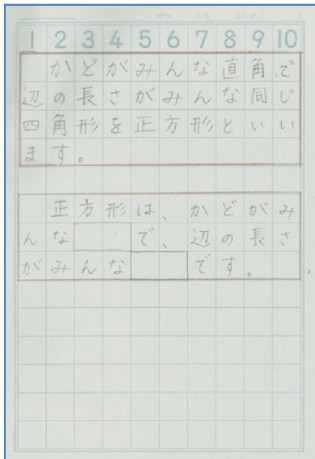 1 2 3 4 5 6 7 8 9 10
かどがみんな直角で
辺の長さがみんな同じ
四角形を正方形といい
ます。
正方形は、かどがみ
んな　　で、辺の長さ
がみんな　　です。